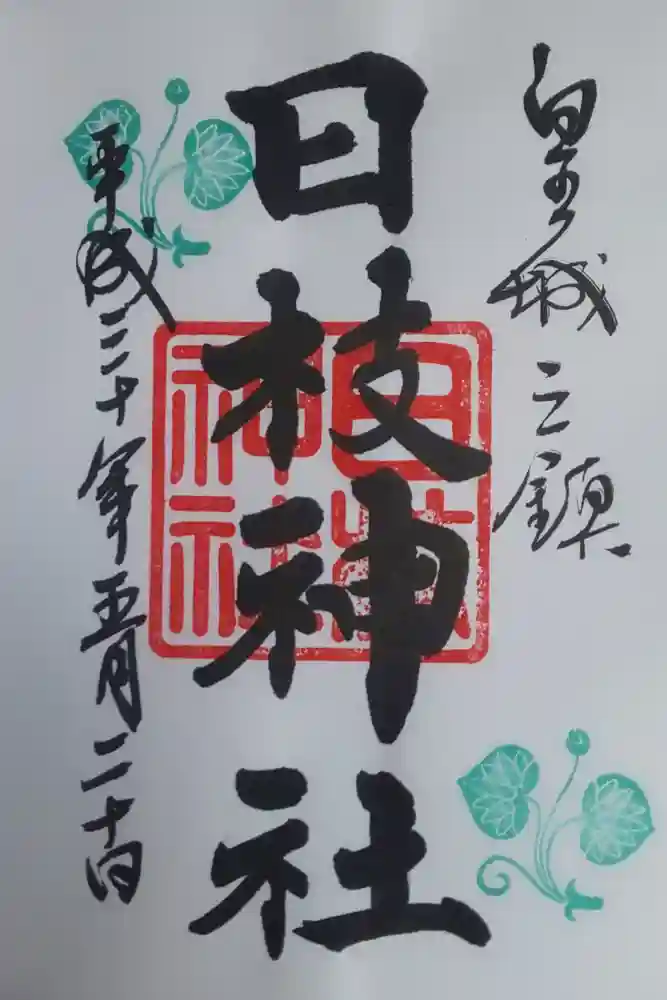 皇城之鎮
日枝神社
平成三十年五月二十日
日枝
神社